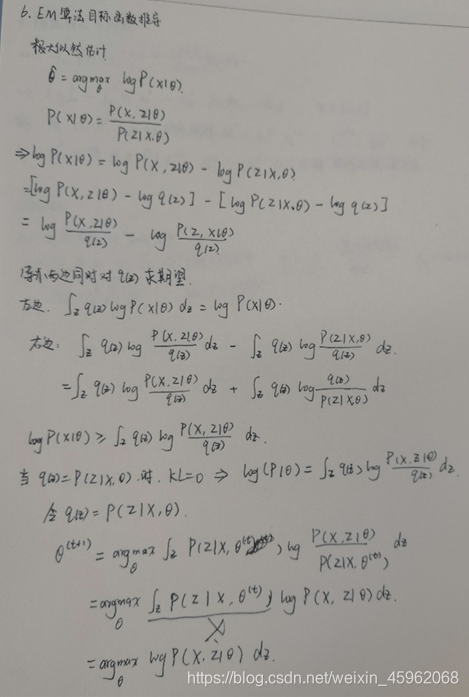 6. EM算法目标函数推导
极大似然估计
θ̂ = argmax_θ log P(X|θ)
P(X|θ) = P(X,Z|θ) / P(Z|X,θ)
⇒ log P(X|θ) = log P(X,Z|θ) - log P(Z|X,θ)
= [log P(X,Z|θ) - log q(z)] - [log P(Z|X,θ) - log q(z)]
= log P(X,Z|θ)/q(z) - log P(Z,X|θ)/q(z)
两边同时对 q(z) 求期望
左边. ∫_z q(z) log P(X|θ) dz = log P(X|θ).
右边: ∫_z q(z) log P(X,Z|θ)/q(z) dz - ∫_z q(z) log P(Z|X,θ)/q(z) dz.
= ∫_z q(z) log P(X,Z|θ)/q(z) dz + ∫_z q(z) log q(z)/P(Z|X,θ) dz
log P(X|θ) ≥ ∫_z q(z) log P(X,Z|θ)/q(z) dz.
当 q(z) = P(Z|X,θ) 时. KL=0 ⇒ log(P|θ) = ∫_z q(z) log P(X,Z|θ)/q(z) dz
令 q(z) = P(Z|X,θ).
θ^(t+1) = argmax_θ ∫_z P(Z|X,θ^(t)) log P(X,Z|θ)/P(Z|X,θ^(t)) dz
= argmax_θ ∫_z P(Z|X,θ^(t)) log P(X,Z|θ) dz.
= argmax_θ log P(X,Z|θ) dz.
https://blog.csdn.net/weixin_45962068